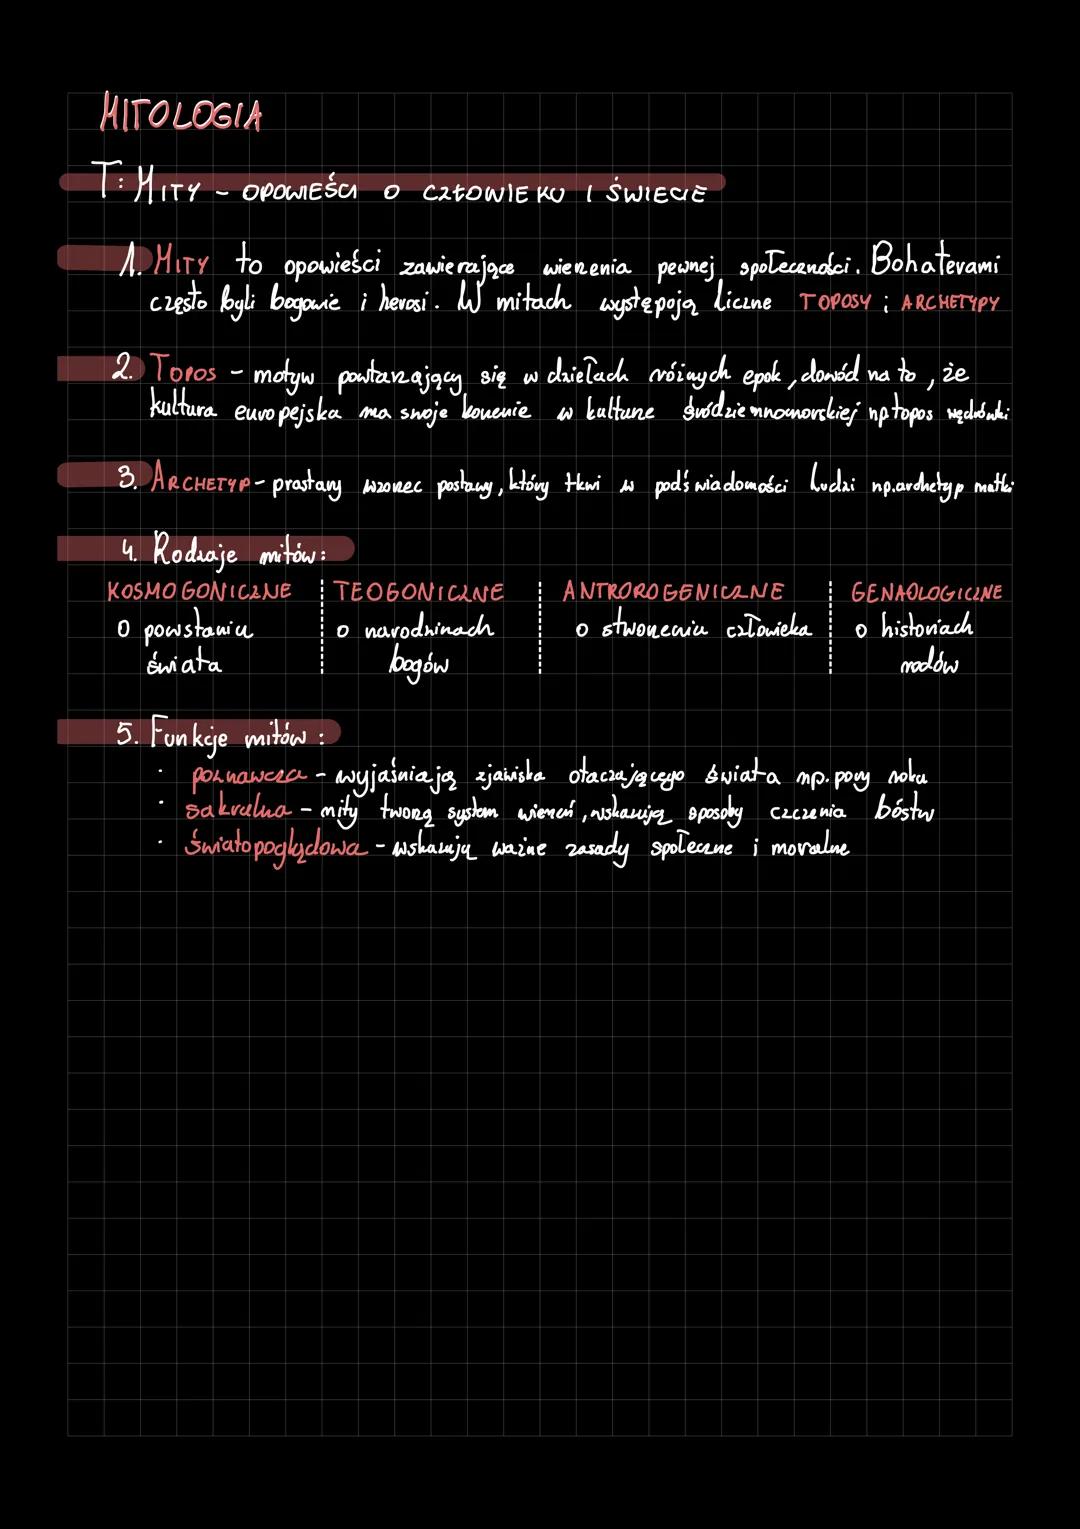 MITOLOGIA
T: MITY - OPOWIEŚCI O CZŁOWIEKU I ŚWIECIE
1. MITY to opowieści zawierające wierzenia pewnej społeczności. Bohaterami
często byli bogowie i herosi. W mitach występoją liczne TOPOSY i ARCHETYPY
2. TOPOS - motyw powtarzający się w dziełach różnych epok, dowód na to, że
kultura europejska ma swoje korzenie w kulturze śródziemnomorskiej np. topos wędrówki
3. ARCHETYP - prastary wzorzec postawy, który tkwi w podświadomości ludzi np. archetyp matki
4. Rodzaje mitów:
KOSMOGONICZNE TEOGONICZNE ANTROROGENICZNE GENAOLOGICZNE
o powstaniu o narodzinach o stworzeniu człowieka o historiach
świata bogów rodów
5. Funkcje mitów:
· poznawcza - wyjaśniają zjawiska otaczającego świata np. pory roku
· sakralna - mity tworzą system wierzeń, wskazują sposoby czczenia bóstw
· światopoglądowa - wskazują ważne zasady społeczne i moralne